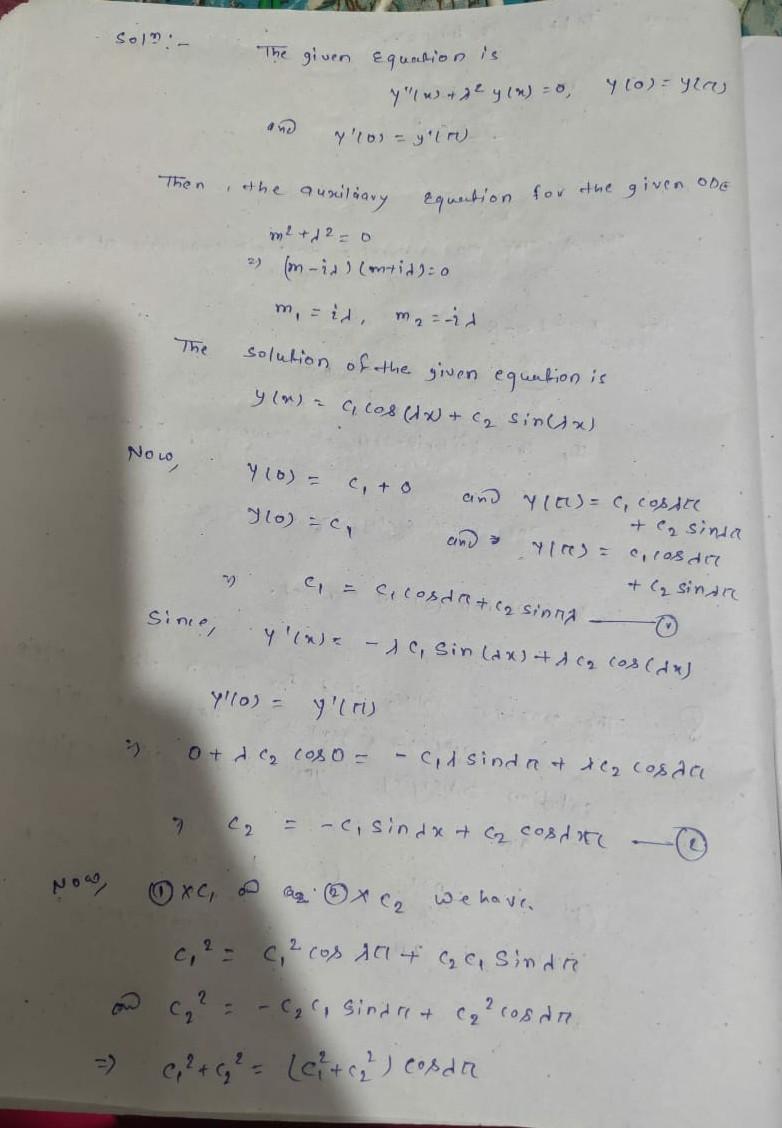 Soln:-
The given Equation is
y''(x) + λ² y(x) = 0, y(0) = y(π)
and y'(0) = y'(π)
Then, the auxiliary equation for the given ODE
m² + λ² = 0
⇒ (m - iλ)(m+iλ)=0
m₁ = iλ, m₂ = -iλ
The solution of the given equation is
y(x) = c₁ cos(λx) + c₂ sin(λx)
Now, y(0) = c₁ + 0 and y(π) = c₁ cosλπ
+ c₂ sinλπ
y(0) = c₁ and ⇒ y(π) = c₁ cosλπ
+ c₂ sinλπ
⇒ c₁ = c₁ cosλπ + c₂ sinπλ — ①
Since, y'(x) = -λc₁ sin(λx) + λc₂ cos(λx)
y'(0) = y'(π)
⇒ 0 + λc₂ cos0 = -c₁λ sinλπ + λc₂ cosλπ
⇒ c₂ = -c₁ sinλx + c₂ cosλπ — ②
Now, ①×c₁ ②×c₂ we have.
c₁² = c₁² cosλπ + c₂c₁ sinλπ
and c₂² = -c₂c₁ sinλπ + c₂² cosλπ
⇒ c₁² + c₂² = (c₁² + c₂²) cosλπ